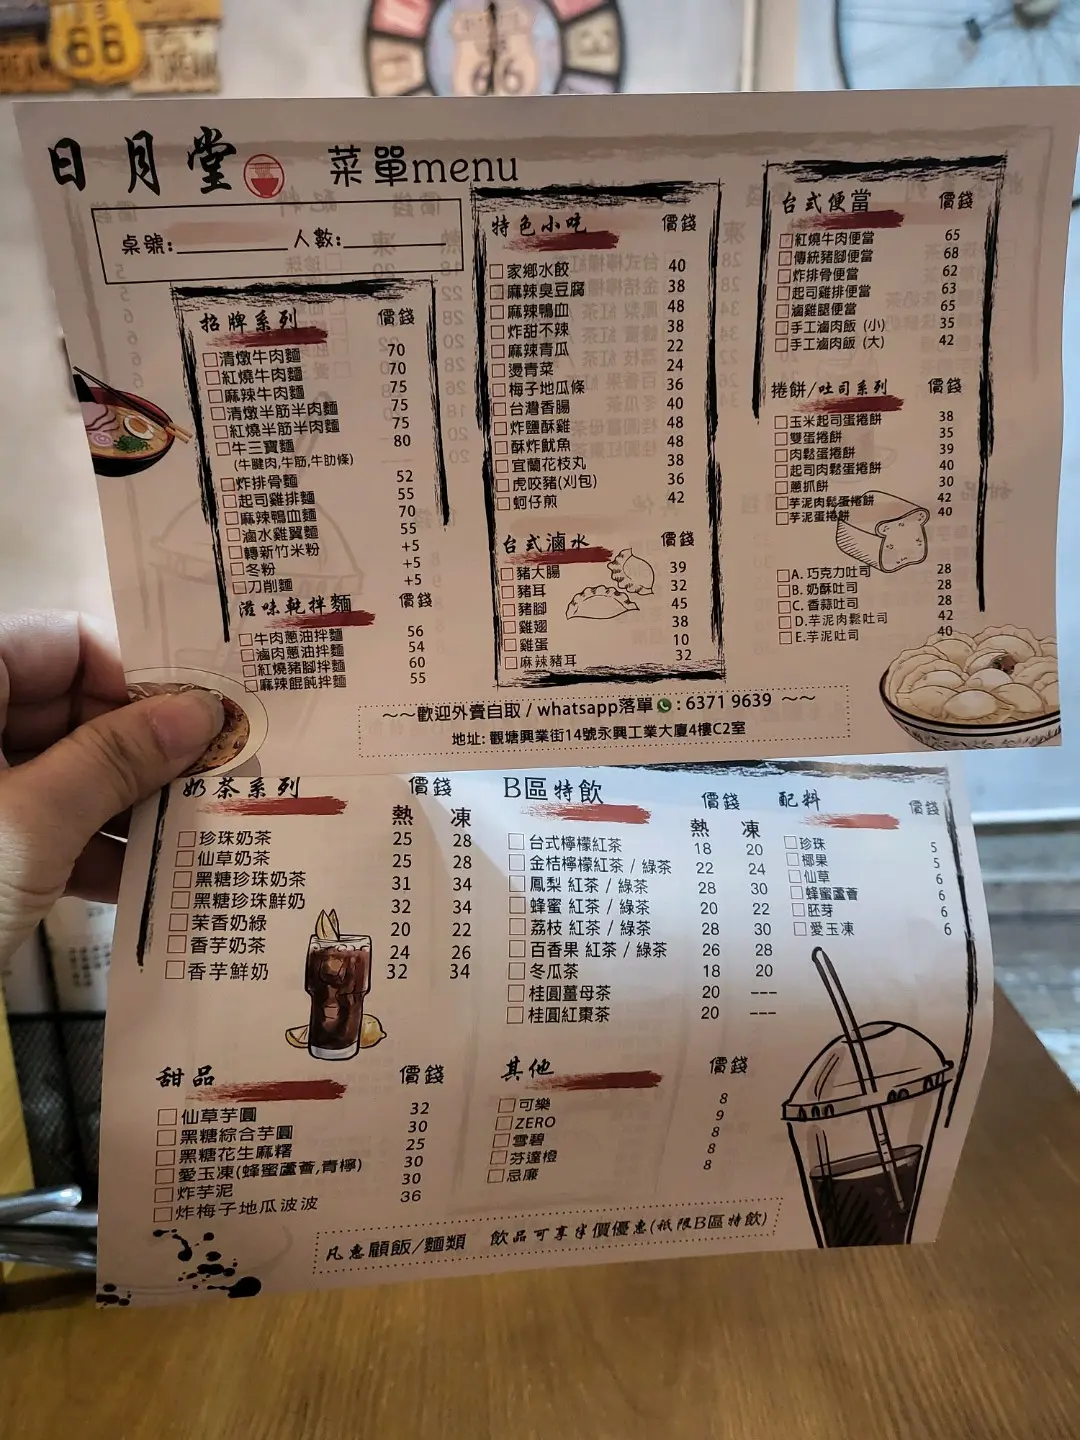 66
66
日月堂
菜單menu
桌號: 人數:
招牌系列 價錢
清燉牛肉麵 70
紅燒牛肉麵 70
麻辣牛肉麵 75
清燉半筋半肉麵 75
紅燒半筋半肉麵 75
牛三寶麵 80
(牛腱肉,牛筋,牛肋條)
炸排骨麵 52
起司雞排麵 55
麻辣鴨血麵 70
滷水雞翼麵 55
轉新竹米粉 +5
冬粉 +5
刀削麵 +5
滋味乾拌麵 價錢
牛肉蔥油拌麵 56
滷肉蔥油拌麵 54
紅燒豬腳拌麵 60
麻辣餛飩拌麵 55
特色小吃 價錢
家鄉水餃 40
麻辣臭豆腐 38
麻辣鴨血 48
炸甜不辣 38
麻辣青瓜 22
燙青菜 24
梅子地瓜條 36
台灣香腸 40
炸鹽酥雞 48
酥炸魷魚 48
宜蘭花枝丸 38
虎咬豬(刈包) 36
蚵仔煎 42
台式滷水 價錢
豬大腸 39
豬耳 32
豬腳 45
雞翅 38
雞蛋 10
麻辣豬耳 32
台式便當 價錢
紅燒牛肉便當 65
傳統豬腳便當 68
炸排骨便當 62
起司雞排便當 63
滷雞腿便當 65
手工滷肉飯 (小) 35
手工滷肉飯 (大) 42
捲餅/吐司系列 價錢
玉米起司蛋捲餅 38
雙蛋捲餅 35
肉鬆蛋捲餅 39
起司肉鬆蛋捲餅 40
蔥抓餅 30
芋泥肉鬆蛋捲餅 42
芋泥蛋捲餅 40
A. 巧克力吐司 28
B. 奶酥吐司 28
C. 香蒜吐司 28
D.芋泥肉鬆吐司 42
E.芋泥吐司 40
~~歡迎外賣自取 / whatsapp落單 : 6371 9639 ~~
地址: 觀塘興業街14號永興工業大廈4樓C2室
奶茶系列 價錢
熱 凍
珍珠奶茶 25 28
仙草奶茶 25 28
黑糖珍珠奶茶 31 34
黑糖珍珠鮮奶 32 34
茉香奶綠 20 22
香芋奶茶 24 26
香芋鮮奶 32 34
甜品 價錢
仙草芋圓 32
黑糖綜合芋圓 30
黑糖花生麻糬 25
愛玉凍(蜂蜜蘆薈,青檸) 30
炸芋泥 30
炸梅子地瓜波波 36
B區特飲 價錢
熱 凍
台式檸檬紅茶 18 20
金桔檸檬紅茶 / 綠茶 22 24
鳳梨 紅茶 / 綠茶 28 30
蜂蜜 紅茶 / 綠茶 20 22
荔枝 紅茶 / 綠茶 28 30
百香果 紅茶 / 綠茶 26 28
冬瓜茶 18 20
桂圓薑母茶 20 ---
桂圓紅棗茶 20 ---
配料 價錢
珍珠 5
椰果 5
仙草 6
蜂蜜蘆薈 6
胚芽 6
愛玉凍 6
其他 價錢
可樂 8
ZERO 9
雪碧 8
芬達橙 8
忌廉 8
凡惠顧飯/麵類 飲品可享半價優惠(祇限B區特飲)